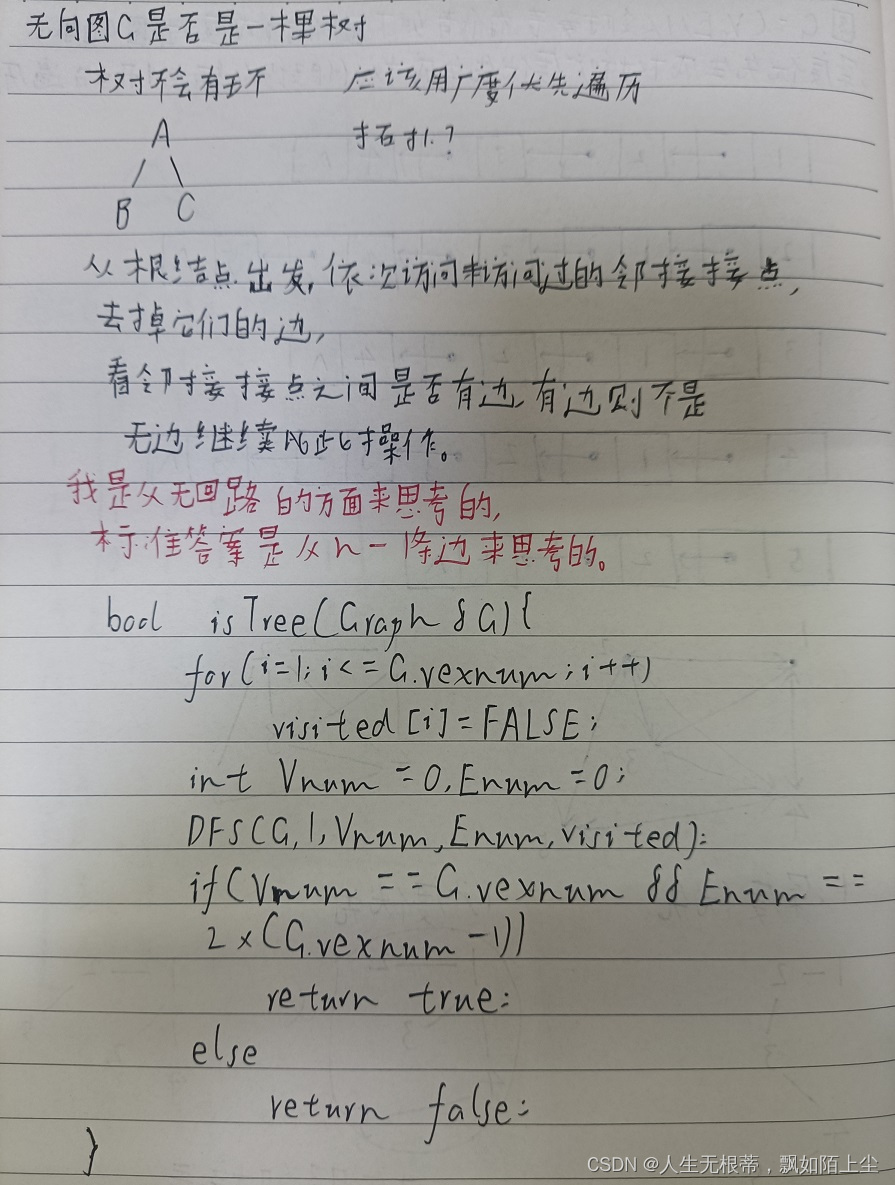 无向图G是否是一棵树
树不会有环 应该用广度优先遍历
A
B C
从根结点出发,依次访问未访问过的邻接接点,
去掉它们的边,
看邻接接点之间是否有边,有边则不是
无边继续 此操作。
我是从无回路的方面来思考的,
标准答案是从n-1条边来思考的。
bool isTree(Graph &G){
for(i=1;i<=G.vexnum;i++)
visited[i]=FALSE;
int Vnum=0,Enum=0;
DFS(G,1,Vnum,Enum,visited);
if(Vnum==G.vexnum && Enum==
2×(G.vexnum-1))
return true;
else
return false;
}
CSDN @人生无根蒂，飘如陌上尘